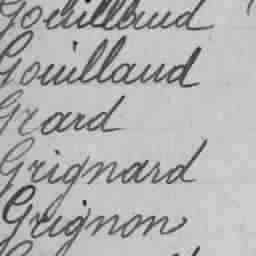 Gouillaud
Gouilland
Grard
Grignard
Grignon